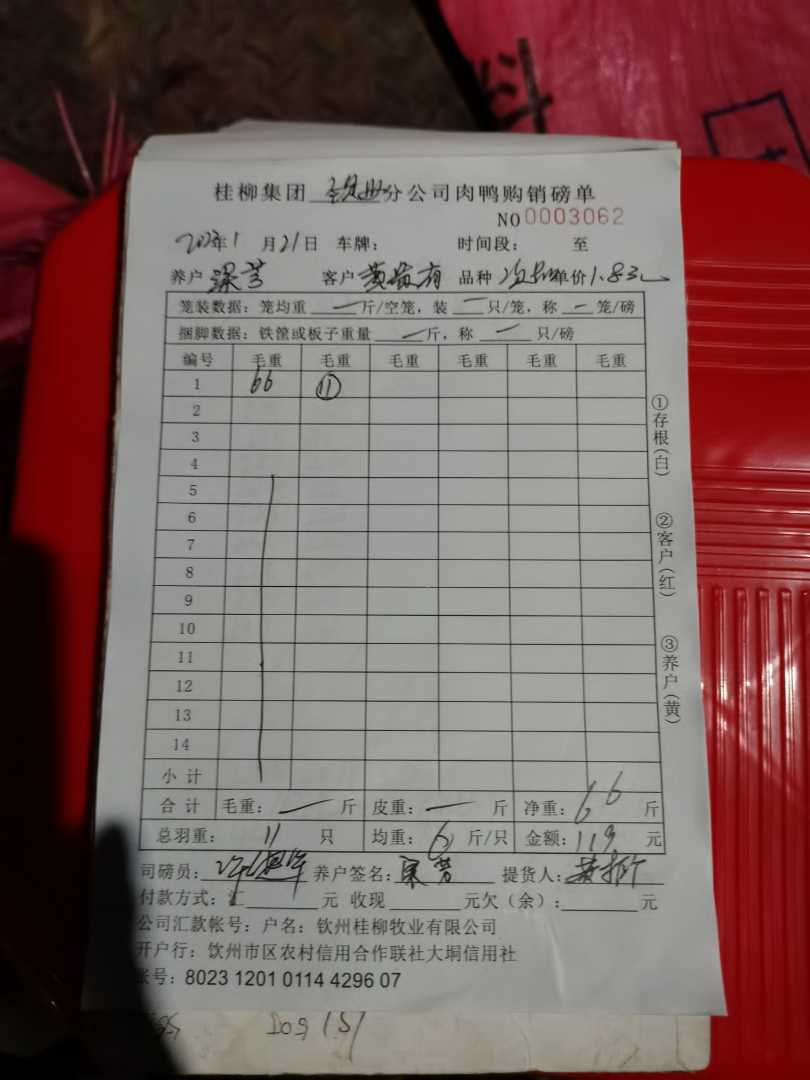 桂柳集团 分公司肉鸭购销磅单
NO 0003062
2023年1月21日 车牌： 时间段： 至
养户 客户 黄 有 品种 单价1.83元
笼装数据：笼均重 — 斤/空笼，装 — 只/笼，称 — 笼/磅
捆脚数据：铁筐或板子重量 — 斤，称 — 只/磅
编号 毛重 毛重 毛重 毛重 毛重 毛重
1 66 ⑪
2
3
4
5
6
7
8
9
10
11
12
13
14
小 计
合 计 毛重： — 斤 皮重： — 斤 净重：66 斤
总羽重： 11 只 均重：6 斤/只 金额：119 元
司磅员： 养户签名： 提货人：
付款方式：汇 元 收现 元欠（余）： 元
公司汇款帐号：户名：钦州桂柳牧业有限公司
开户行：钦州市区农村信用合作联社大垌信用社
帐号：8023 1201 0114 4296 07
①存根(白)
②客户(红)
③养户(黄)